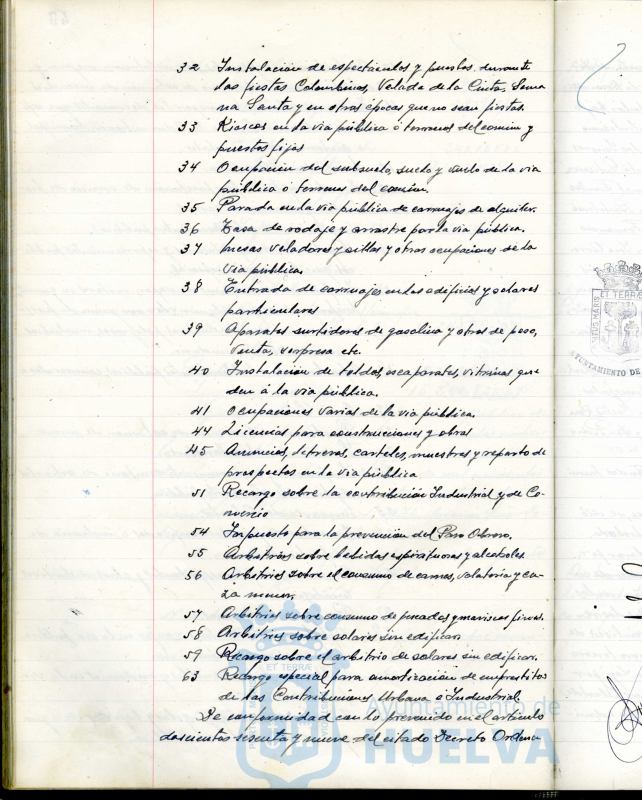 32 Instalación de espectáculos y puestos durante
las fiestas Colombinas, Velada de la Cinta, Sema
na Santa y en otras épocas que no sean fiestas.
33 Kioscos en la via pública ó terrenos del comun y
puestos fijos
34 Ocupación del subsuelo, suelo y vuelo de la via
pública ó terrenos del común.
35 Parada en la via pública de carruajes de alquiler.
36 Tasa de rodaje y arrastre por la via pública.
37 Mesas veladores y sillas y otras ocupaciones de la
via pública.
38 Entrada de carruajes en los edificios y solares
particulares
39 Aparatos surtidores de gasolina y otros de peso,
venta, sorpresa etc.
40 Instalación de toldos, escaparates, vitrinas que
den á la via pública.
41 Ocupaciones varias de la via pública.
44 Licencias para construcciones y obras
45 Anuncios, letreros, carteles, muestras y reparto de
prospectos en la via pública
51 Recargo sobre la contribución Industrial y de Co-
mercio
54 Impuesto para la prevención del Paro Obrero.
55 Arbitrios sobre bebidas espirituosas y alcoholes.
56 Arbitrios sobre el consumo de carnes, volateria y ca-
za menor.
57 Arbitrios sobre consumo de pescados y mariscos finos.
58 Arbitrios sobre solares sin edificar.
59 Recargo sobre el arbitrio de solares sin edificar.
63 Recargo especial para amortización de empréstitos
de las Contribuciones Urbana é Industrial.
De conformidad con lo prevenido en el artículo
doscientos sesenta y nueve del citado Decreto Ordena
Ayuntamiento de
HUELVA
ET TERRÆ
AYUNTAMIENTO DE